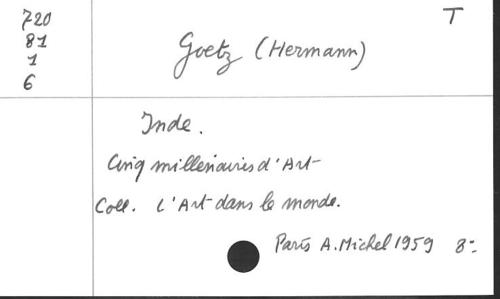 720
81
1
6
T
Goetz (Hermann)
Inde.
Cinq millenaires d'Art
Coll. L'Art dans le monde.
Paris A. Michel 1959 8=